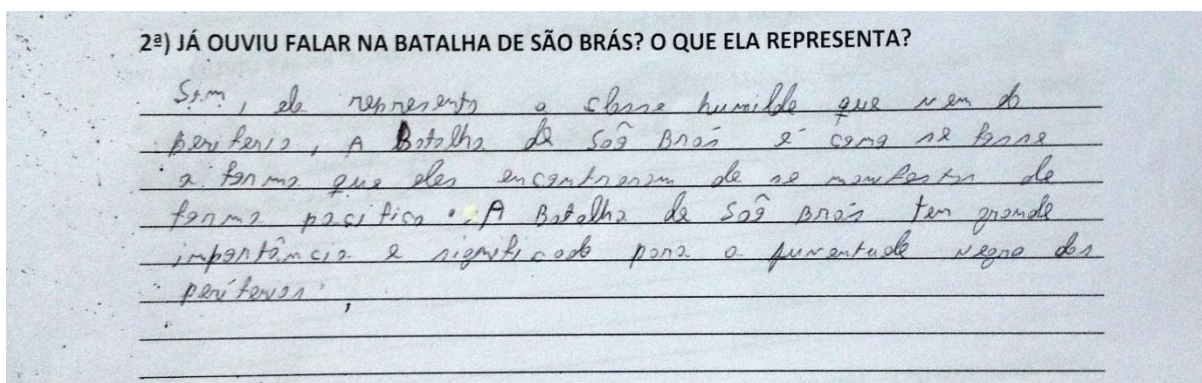 2ª) JÁ OUVIU FALAR NA BATALHA DE SÃO BRÁS? O QUE ELA REPRESENTA?
Sim, ela representa a classe humilde que vem da
periferia, A Batalha de São Brás é como se fosse
a forma que eles encontraram de se manifestar de
forma pacifica. A Batalha de São Brás tem grande
importância e significado para a juventude negra das
periferias